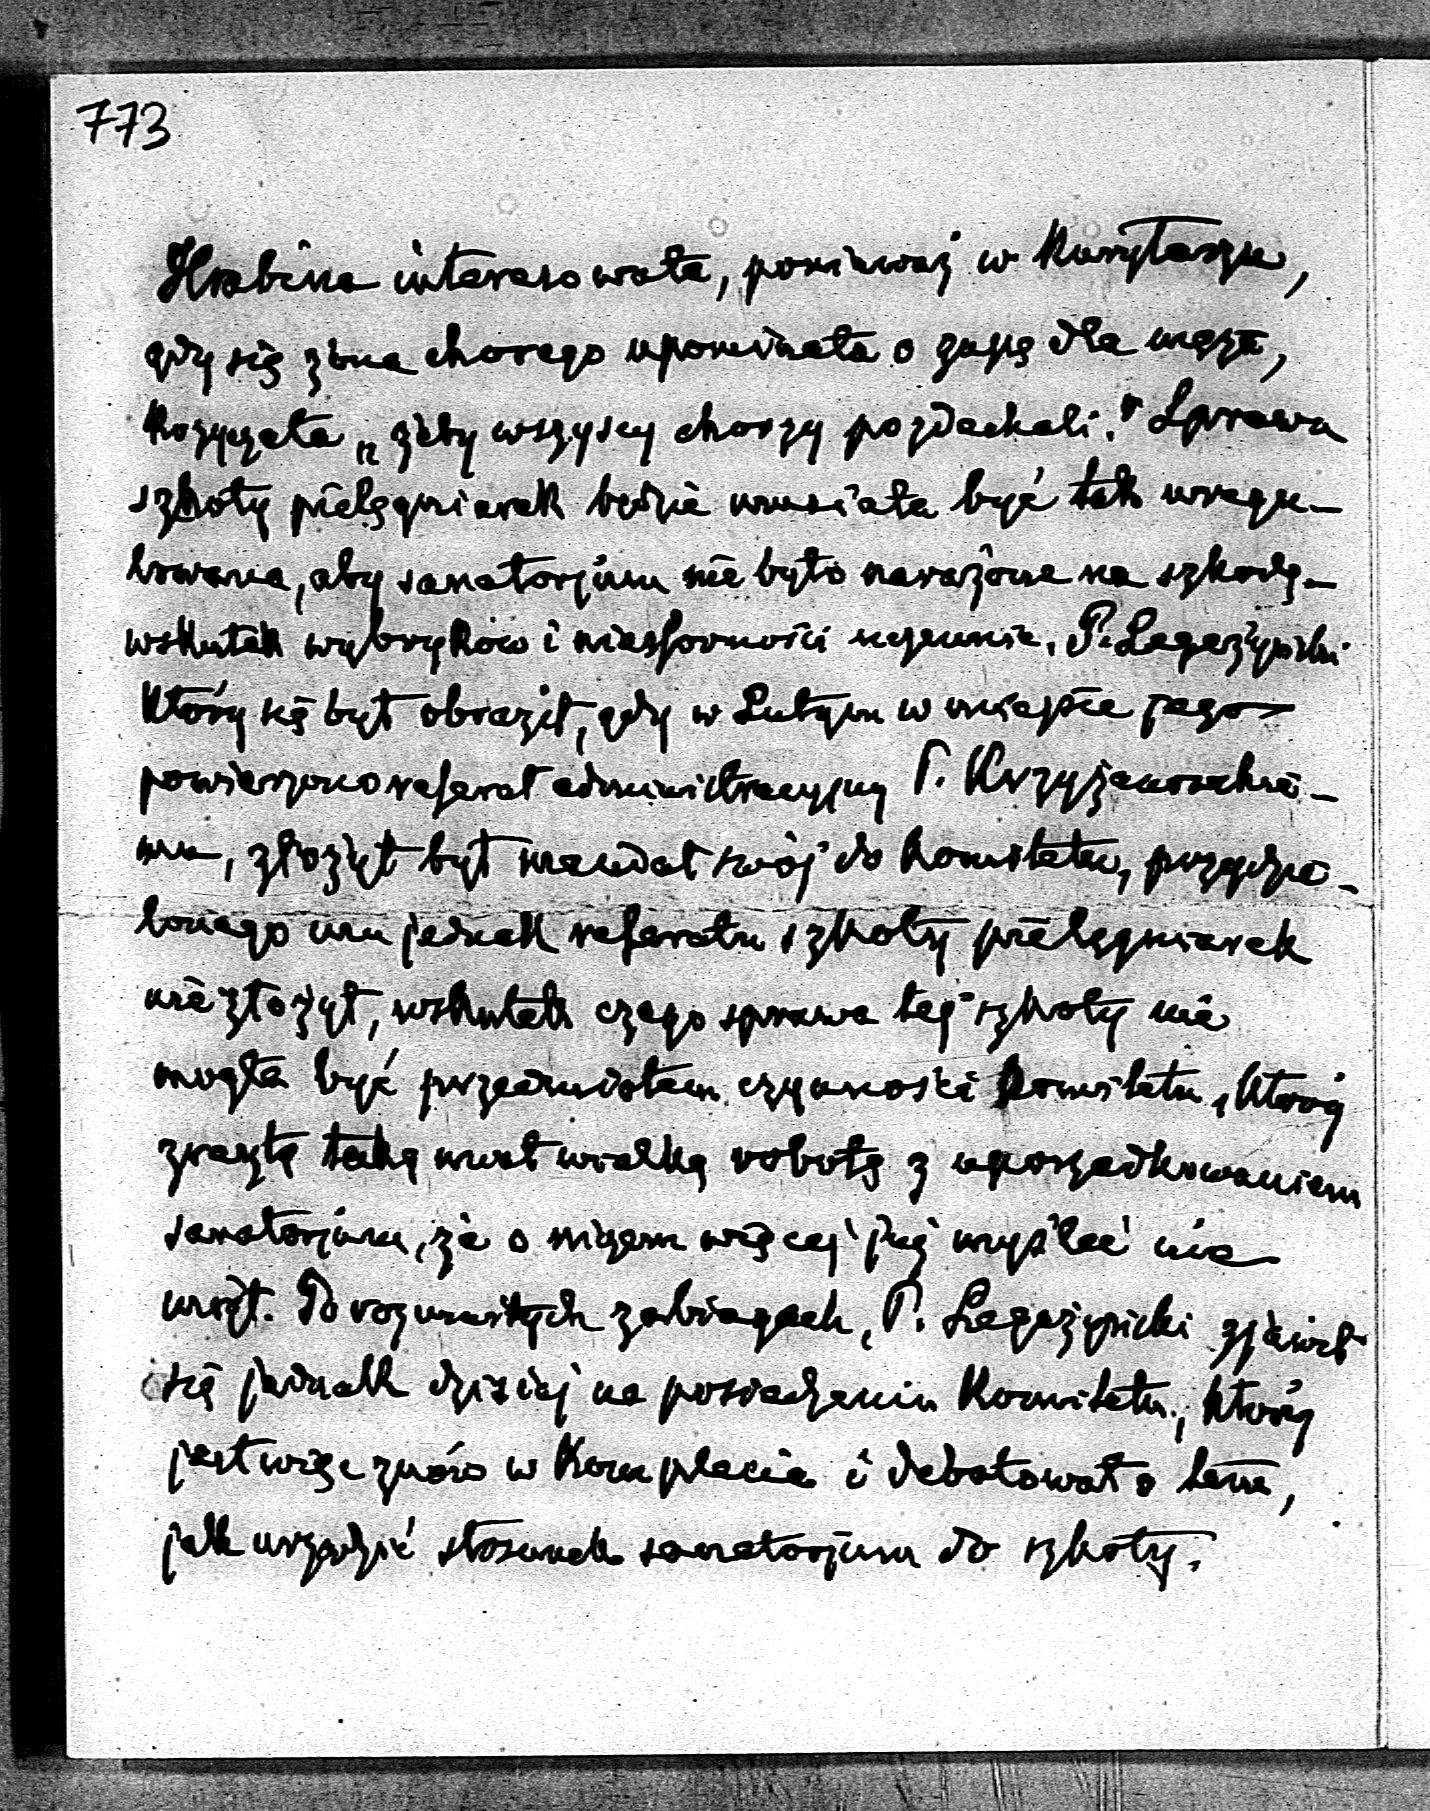 773
Hrabina interesowała, ponieważ w Korytarzu,
gdy się żona chorego upominała o zupę dla męża,
Krzyczała „żeby wszyscy chorzy pozdechali." Sprawa
szkoły pielęgniarek będzie musiała być tak uregu-
lowana, aby sanatorjum nie było narażone na szkodę
wskutek wybryków i niesforności uczennic. P.
Który się był obraził, gdy w Lutym w miejsce jego
powierzono referat administracyjny P. Krzyżanowskie-
mu, złożył był mandat swój do Komitetu, przydzie-
lonego mu jednak referatu szkoły pielęgniarek
nie złożył, wskutek czego sprawa tej szkoły nie
mogła być przedmiotem czynności Komitetu, Który
zresztą taką miał wielką robotę z uporządkowaniem
sanatorjum, że o niczem więcej już myśleć nie
mógł. Po rozmaitych zabiegach, P. zjawił
się jednak dzisiaj na posiedzeniu Komitetu, Który
jest więc znów w Komplecie i debatował o tem,
jak urządzić stosunek sanatorjum do szkoły.